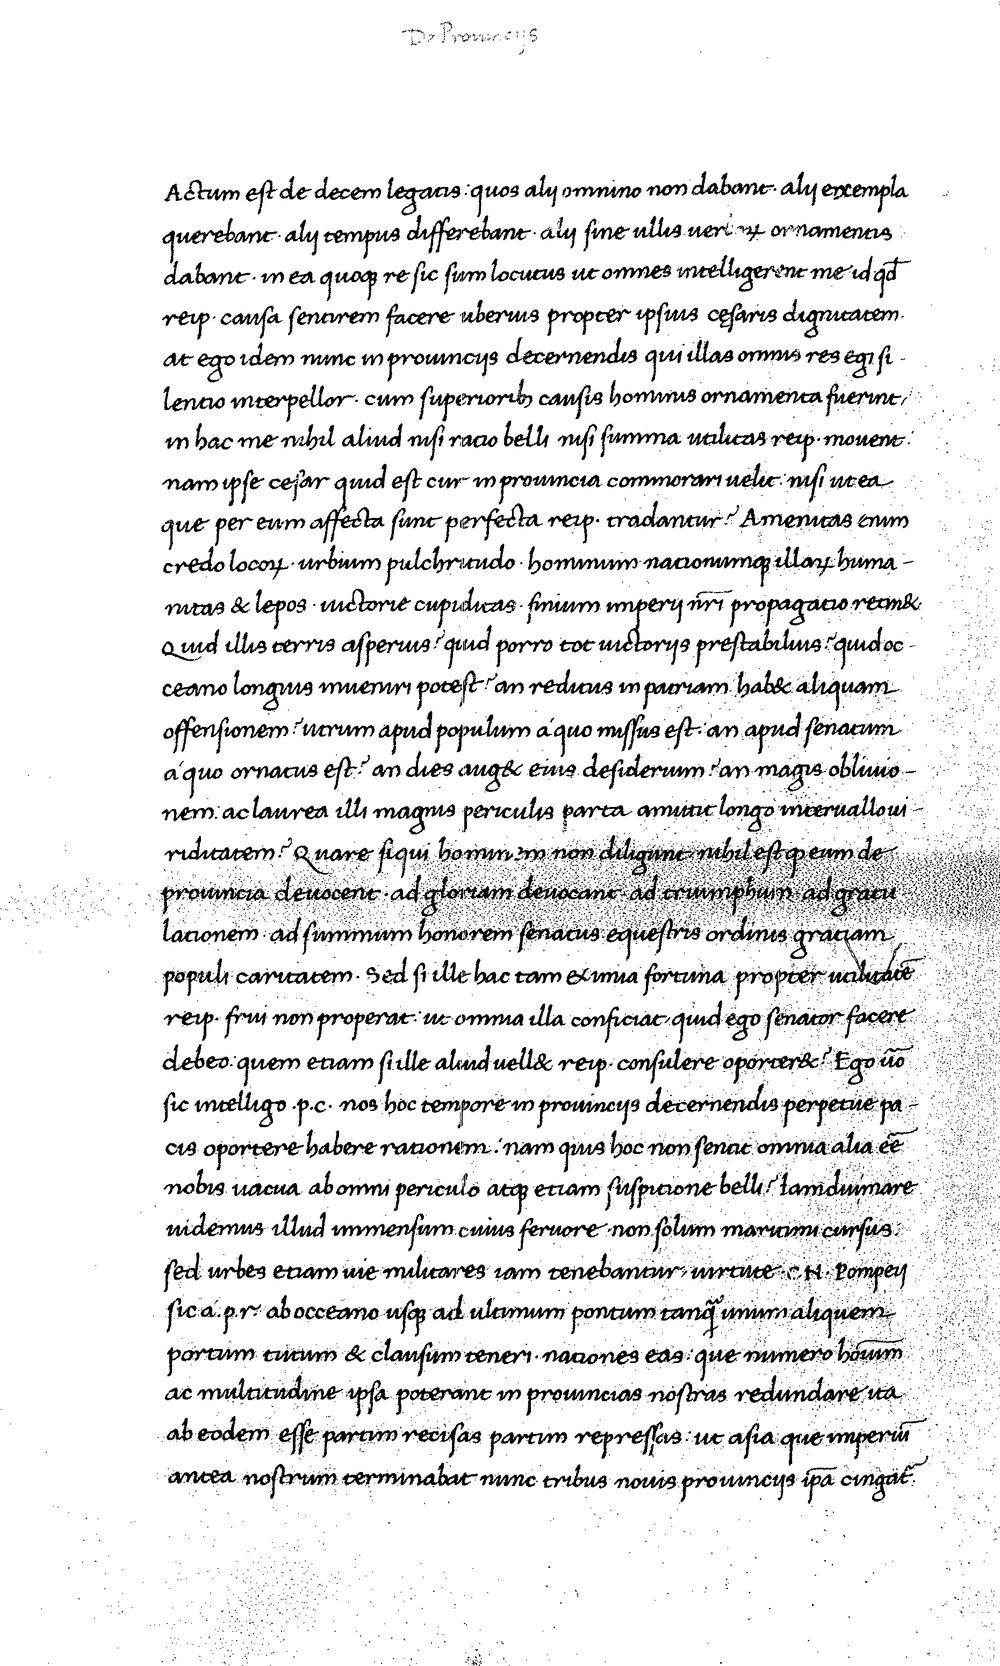 De Prouincijs
Actum est de decem legatis: quos alij omnino non dabant· alij exempla
querebant· alij tempus differebant· alij sine ullis uerboꝝ ornamentis
dabant· in ea quoqꝫ re sic sum locutus ut omnes intelligerent me id qđ
reip· causa sentirem facere uberius propter ipsius cęsaris dignitatem·
at ego idem nunc in prouincijs decernendis qui illas omnis res egi si-
lentio interpellor· cum superioribꝫ causis hominis ornamenta fuerint,
in hac me nihil aliud nisi ratio belli nisi summa utilitas reip· mouent:
nam ipse cesar quid est cur in prouincia commorari uelit: nisi ut ea
que per eum affecta sunt perfecta reip· tradantur? Amenitas enim
credo locoꝝ· urbium pulchritudo· hominum nationumqꝫ illaꝝ huma-
nitas & lepos· uictorie cupiditas· finium imperij nr̄i propagatio retin&
Quid illis terris asperius? quid porro tot uictorijs prestabilius? quid oc-
ceano longius inueniri potest? an reditus in patriam hab& aliquam
offensionem? utrum apud populum a'quo missus est: an apud senatum
a'quo ornatus est? an dies aug& eius desiderium? an magis obliuio-
nem: ac laurea illi magnis periculis parta amittit longo interuallo ui-
riditatem? Quare siqui hominem non diligunt nihil est ꝙ eum de
prouincia deuocent· ad gloriam deuocant· ad triumphum· ad gratu
lationem· ad summum honorem senatus equestris ordinis gratiam
populi caritatem· Sed si ille hac tam eximia fortuna propter utilitatē
reip· frui non properat: ut omnia illa conficiat, quid ego senator facere
debeo: quem etiam si ille aliud uell& reip· consulere oporter&? Ego ūo
sic intelligo ·p·c· nos hoc tempore in prouincijs decernendis perpetue pa-
cis oportere habere rationem: nam quis hoc non sentit omnia alia eē
nobis uacua ab omni periculo atqꝫ etiam suspitione belli? Iamdiu mare
uidemus illud immensum cuius feruore non solum maritimi cursus:
sed urbes etiam uie militares iam tenebantur, uirtute CN· Pompeij
sic a'·p·r· ab occeano usqꝫ ad ultimum pontum tanq̃ unum aliquem
portum tutum & clausum teneri· nationes eas: que numero hōuim
ac multitudine ipsa poterant in prouincias nostras redundare ita
ab eodem esse partim recisas partim repressas: ut asia que imperiū
antea nostrum terminabat nunc tribus nouis prouincijs ip̄a cingat̃·